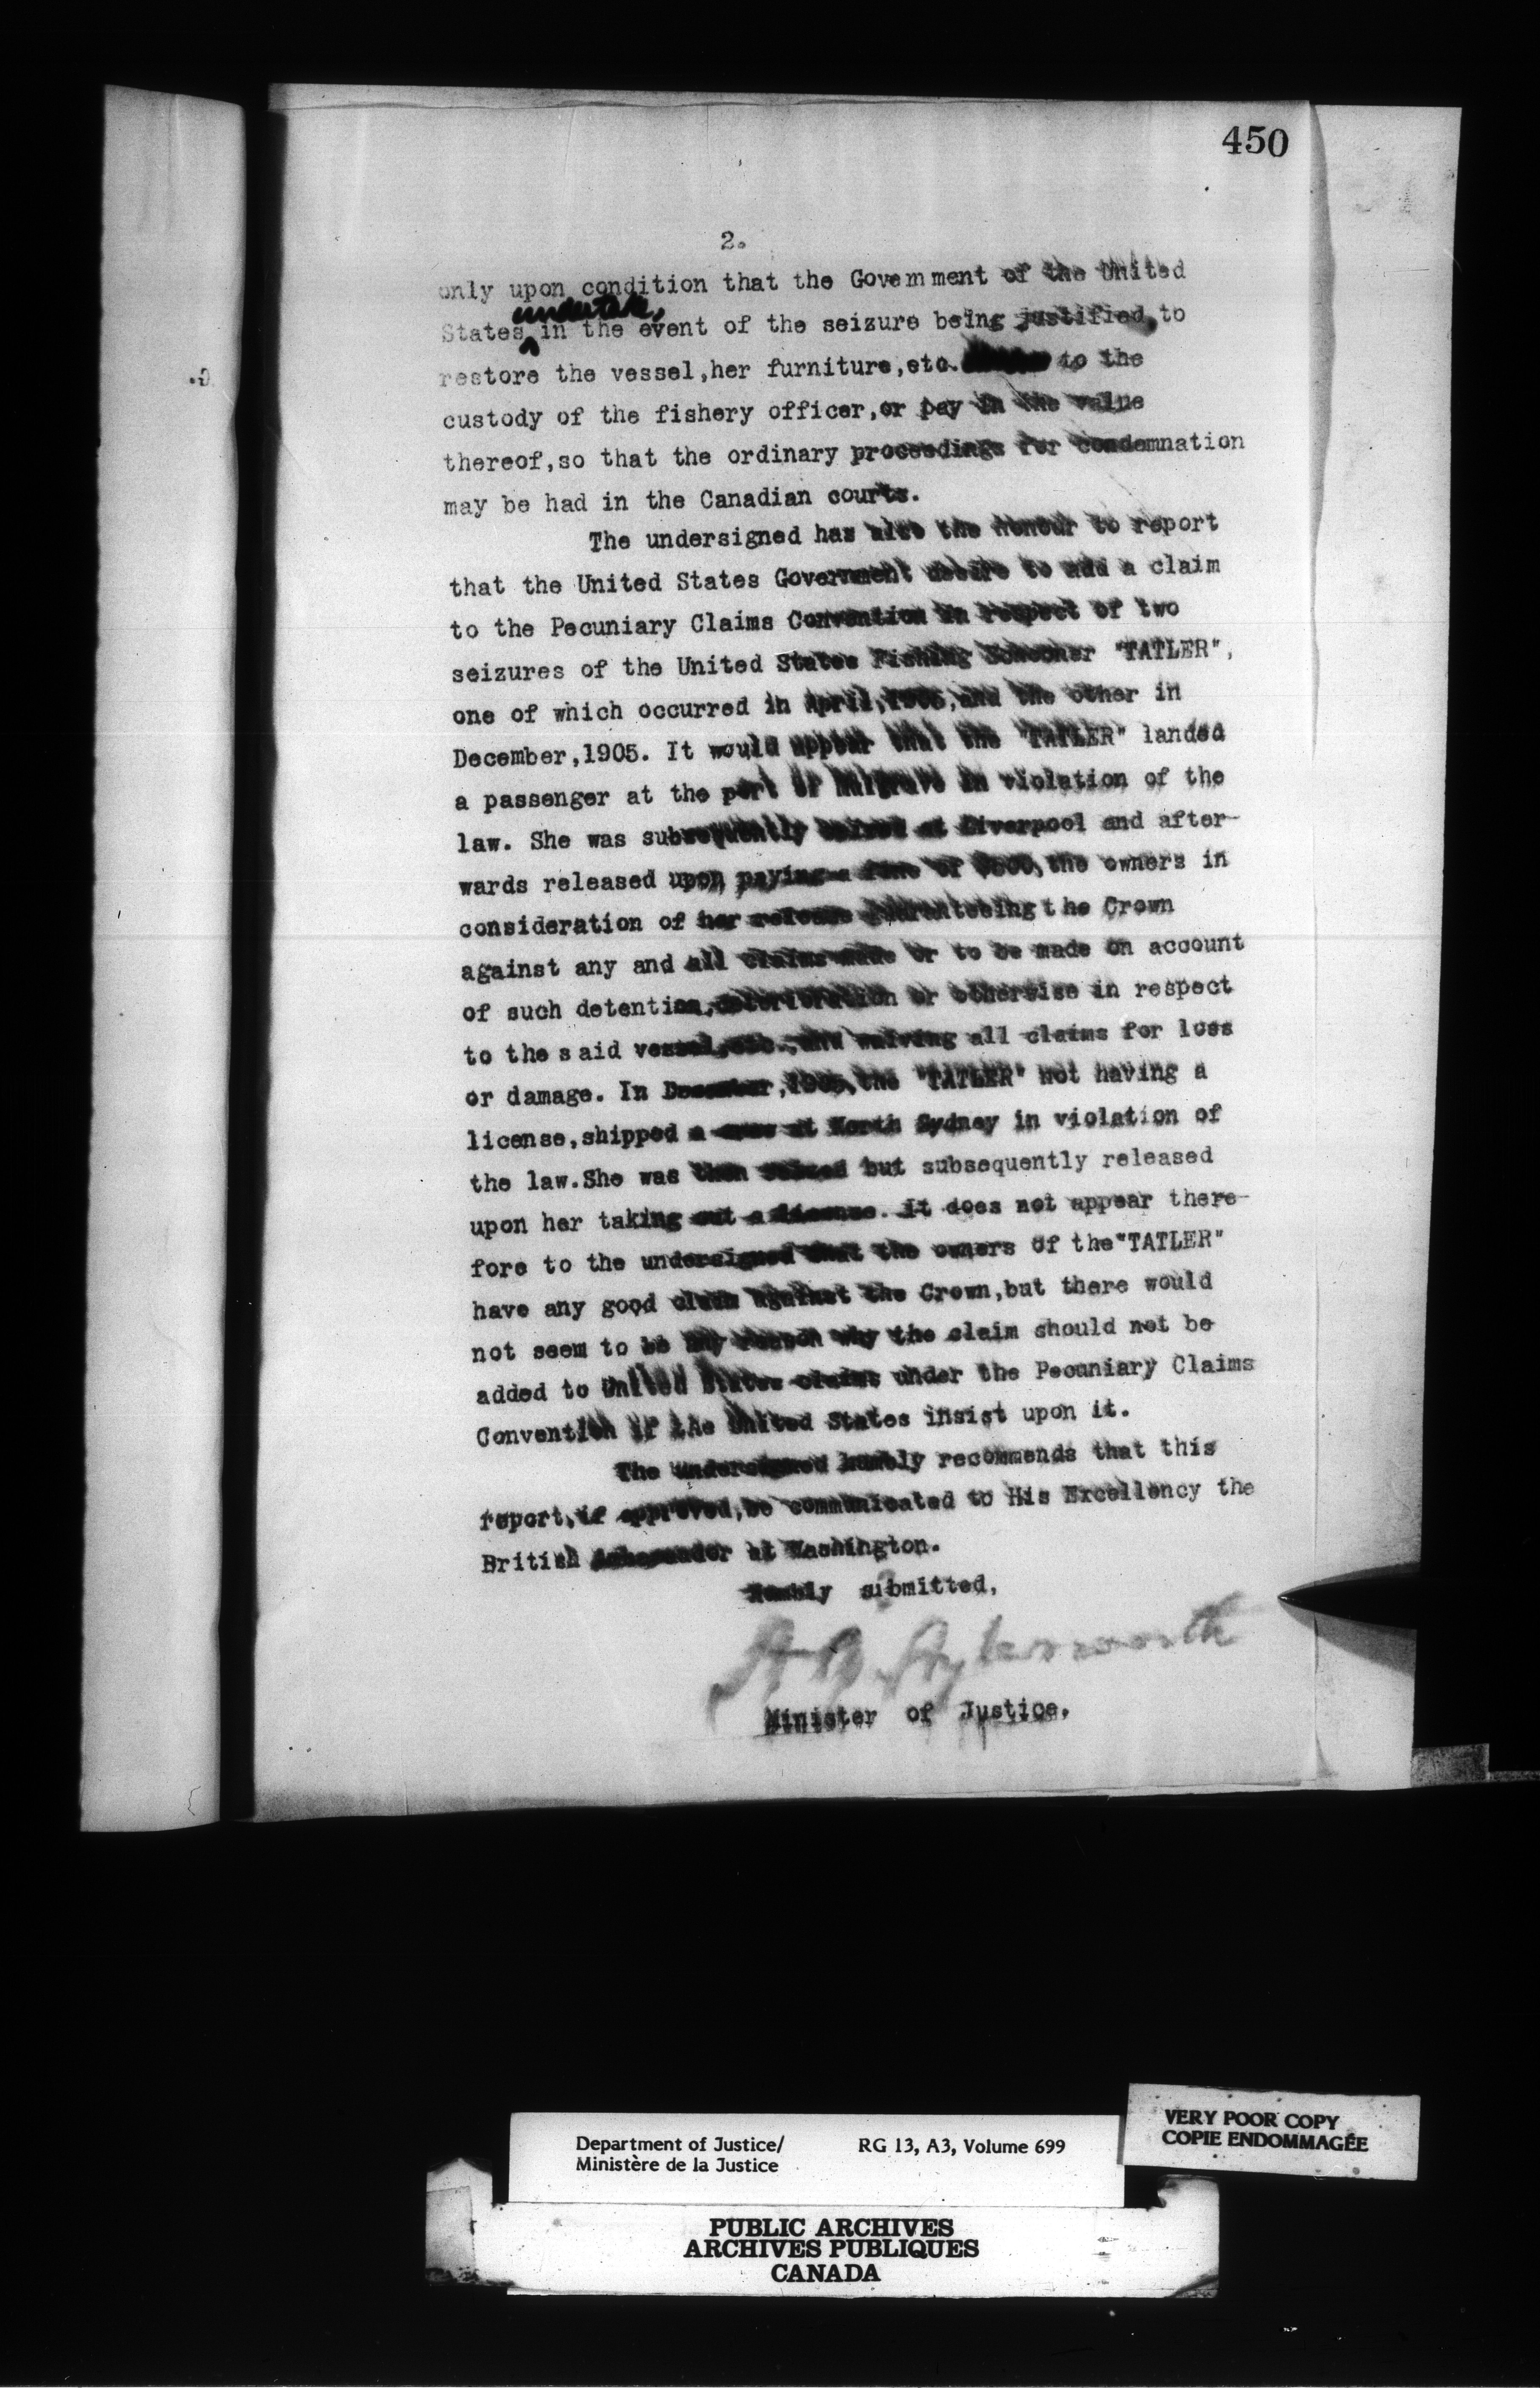 450
2.
only upon condition that the Government of the United
undertake,
States in the event of the seizure being justified, to
restore the vessel,her furniture,etc. to the
custody of the fishery officer,or pay in the value
thereof,so that the ordinary proceedings for condemnation
may be had in the Canadian courts.
The undersigned has also the honour to report
that the United States Government desire to add a claim
to the Pecuniary Claims Convention in respect of two
seizures of the United States Fishing Schooner "TATLER",
one of which occurred in April, and the other in
December,1905. It would appear that the "TATLER" landed
a passenger at the port of Mulgrave in violation of the
law. She was subsequently seized at Liverpool and after-
wards released upon paying a fine of the owners in
consideration of her release guaranteeing the Crown
against any and all claims made or to be made on account
of such detention,deterioration or otherwise in respect
to the said vessel,etc.,and waiving all claims for loss
or damage. In December,1905,the "TATLER" not having a
license,shipped a crew at North Sydney in violation of
the law.She was then seized but subsequently released
upon her taking out a license. It does not appear there-
fore to the undersigned that the owners of the"TATLER"
have any good claim against the Crown,but there would
not seem to be any reason why the claim should not be
added to United States claims under the Pecuniary Claims
Convention if the United States insist upon it.
The undersigned humbly recommends that this
report,if approved,be communicated to His Excellency the
British Ambassador at Washington.
Humbly submitted,
A B Aylesworth
Minister of Justice.
Department of Justice/ RG 13, A3, Volume 699
Ministère de la Justice
VERY POOR COPY
COPIE ENDOMMAGÉE
PUBLIC ARCHIVES
ARCHIVES PUBLIQUES
CANADA